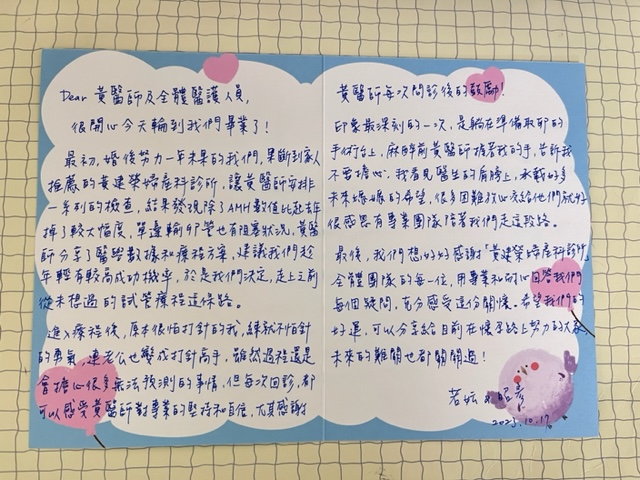 Dear 黃醫師及全體醫護人員,
很開心今天輪到我們畢業了!
最初, 婚後努力一年未果的我們, 果斷到家人
推薦的黃建榮婦產科診所, 讓黃醫師安排
一系列的檢查, 結果發現除了AMH數值比起去年
掉了較大幅度, 單邊輸卵管也有阻塞狀況, 黃醫
師分享了醫學數據和療程方案, 建議我們趁
年輕有較高成功機率, 於是我們決定, 走上之前
從未想過的試管療程這條路。
進入療程後, 原本很怕打針的我, 練就不怕針
的勇氣, 連老公也變成打針高手, 雖然過程還是
會擔心很多無法預測的事情, 但每次回診, 都
可以感受黃醫師對專業的堅持和自信, 尤其感謝
黃醫師每次問診後的鼓勵!
印象最深刻的一次, 是躺在準備取卵的
手術台上, 麻醉前黃醫師握著我的手, 告訴我
不要擔心, 我看見醫生的肩膀上, 承載好多
未來媽媽的希望, 很多困難打心交給他們就好
很感恩有專業團隊陪著我們走這段路。
最後, 我們想好好感謝「黃建榮婦產科診所」
全體團隊的每一位, 用專業和耐心回答我們
每個疑問, 充分感受這份關懷。希望我們的
好運, 可以分享給目前在懷孕路上努力的大家,
未來的難關也都關關過!
若
2025.10.17